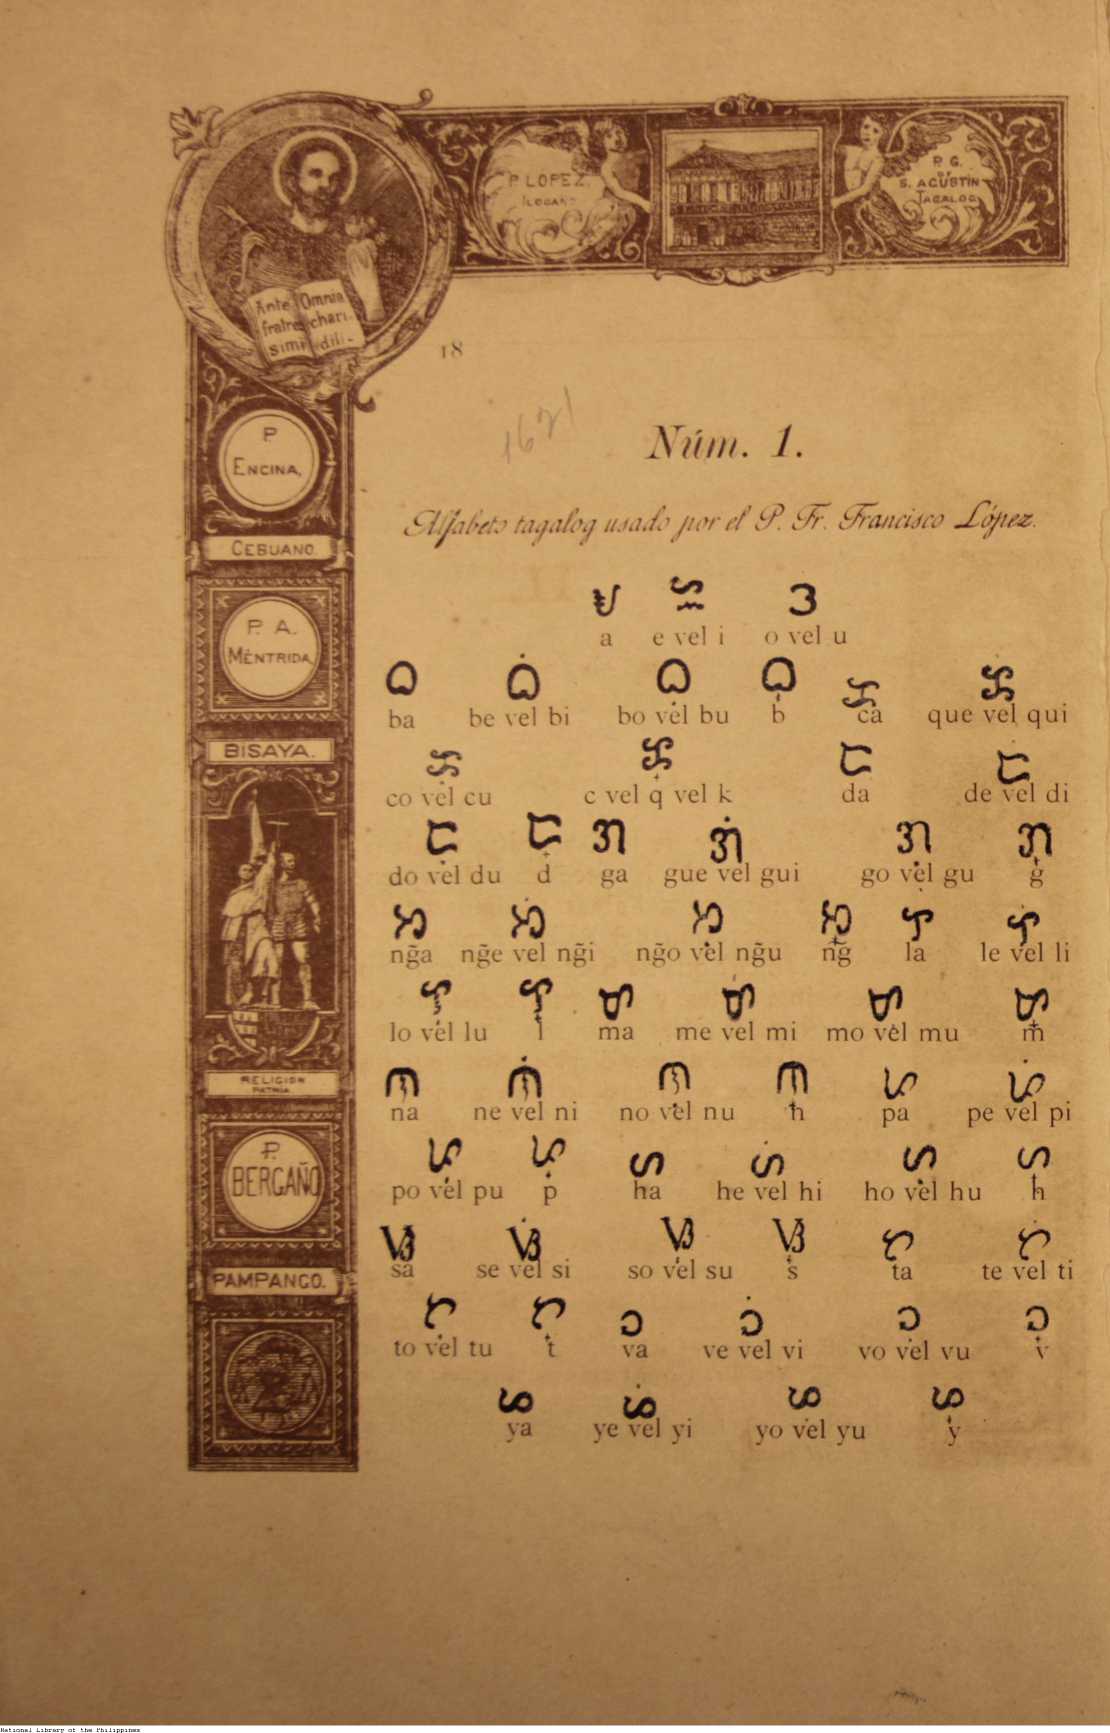 P. LOPEZ.
ILOCANO
P. G.
DE
S. AGUSTIN
TAGALOG
Ante Omnia
fratres chari-
simi dili-
18
1621
P.
ENCINA,
CEBUANO.
P. A.
MÉNTRIDA
BISAYA.
RELIGION
PATRIA
P.
BERGAÑO
PAMPANGO.
Núm. 1.
Alfabeto tagalog usado por el P. Fr. Francisco López.
ᜀ ᜁ ᜂ
a e vel i o vel u
ᜊ ᜊᜒ ᜊᜓ ᜊ᜔ ᜃ ᜃᜒ
ba be vel bi bo vel bu b ca que vel qui
ᜃᜓ ᜃ᜔ ᜇ ᜇᜒ
co vel cu c vel q vel k da de vel di
ᜇᜓ ᜇ᜔ ᜄ ᜄᜒ ᜄᜓ ᜄ᜔
do vel du d ga gue vel gui go vel gu g
ᜅ ᜅᜒ ᜅᜓ ᜅ᜔ ᜎ ᜎᜒ
ng̃a ng̃e vel ng̃i ng̃o vel ng̃u ng̃ la le vel li
ᜎᜓ ᜎ᜔ ᜋ ᜋᜒ ᜋᜓ ᜋ᜔
lo vel lu l ma me vel mi mo vel mu m
ᜈ ᜈᜒ ᜈᜓ ᜈ᜔ ᜉ ᜉᜒ
na ne vel ni no vel nu n pa pe vel pi
ᜉᜓ ᜉ᜔ ᜑ ᜑᜒ ᜑᜓ ᜑ᜔
po vel pu p ha he vel hi ho vel hu h
ᜐ ᜐᜒ ᜐᜓ ᜐ᜔ ᜆ ᜆᜒ
sa se vel si so vel su s ta te vel ti
ᜆᜓ ᜆ᜔ ᜏ ᜏᜒ ᜏᜓ ᜏ᜔
to vel tu t va ve vel vi vo vel vu v
ᜌ ᜌᜒ ᜌᜓ ᜌ᜔
ya ye vel yi yo vel yu y
National Library of the Philippines